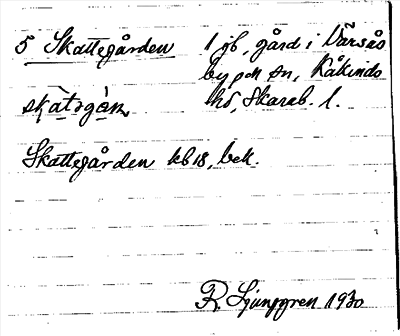 5 Skattegården 1 jb, gård i Värsås
by och sn, Kåkinds
skàtəgàn hd, Skarab. l.
Skattegården kb 18, bek.
R. Ljunggren 1930